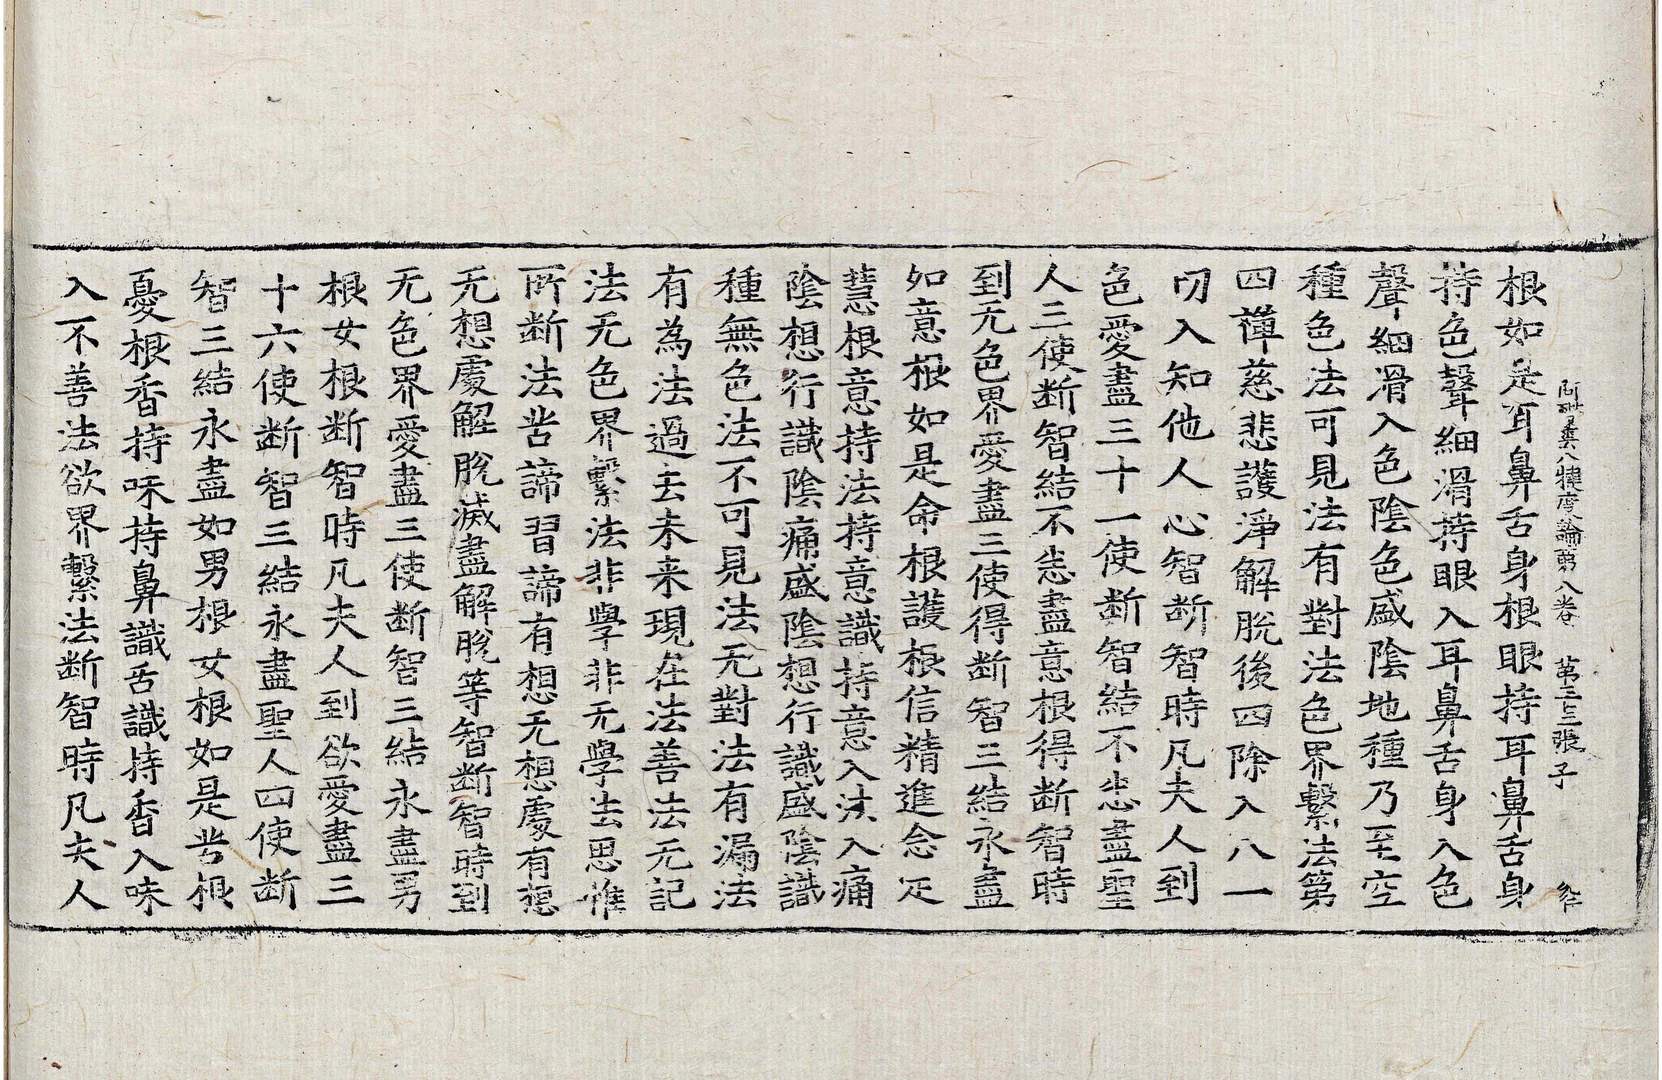 阿毗曇八犍度論第八卷　第三三張　子
根如是耳鼻舌身根眼持耳鼻舌身
持色聲細滑持眼入耳鼻舌身入色
聲細滑入色陰色盛陰地種乃至空
種色法可見法有對法色界繫法第
四禪慈悲護淨解脫後四除入八一
切入知他人心智断智時凡夫人到
色愛盡三十一使断智結不㤀盡聖
人三使断智結不㤀盡意根得断智時
到无色界愛盡三使得断智三結永盡
如意根如是命根護根信精進念㝎
慧根意持法持意識持意入法入痛
陰想行識陰痛盛陰想行識盛陰識
種無色法不可見法无對法有漏法
有為法過去未来現在法善法无記
法无色界繫法非學非无學法思惟
所断法苦諦習諦有想无想處有想
无想處解脫滅盡解脫等智断智時到
无色界愛盡三使断智三結永盡男
根女根断智時凡夫人到欲愛盡三
十六使断智三結永盡聖人四使断
智三結永盡如男根女根如是苦根
憂根香持味持鼻識舌識持香入味
入不善法欲界繫法断智時凡夫人